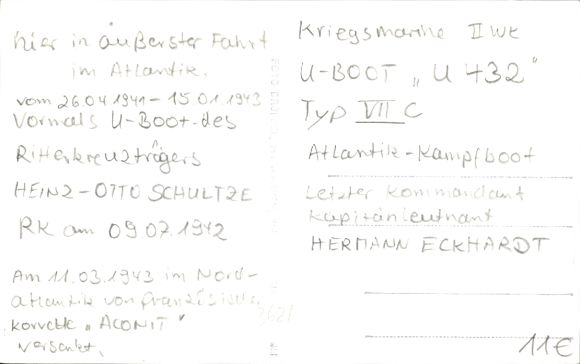 hier in äußerster Fahrt
im Atlantik.
vom 26.04.1941 - 15.01.1943
Vormals U-Boot des
Ritterkreuzträgers
HEINZ-OTTO SCHULTZE
RK am 09.07.1942
Am 11.03.1943 im Nord-
atlantik von französische
Korvette "ACONIT"
versenkt.
Kriegsmarine II Wk
U-BOOT „U 432"
Typ VII C
Atlantik-Kampfboot
Letzter Kommandant
Kapitänleutnant
HERMANN ECKHARDT
11€